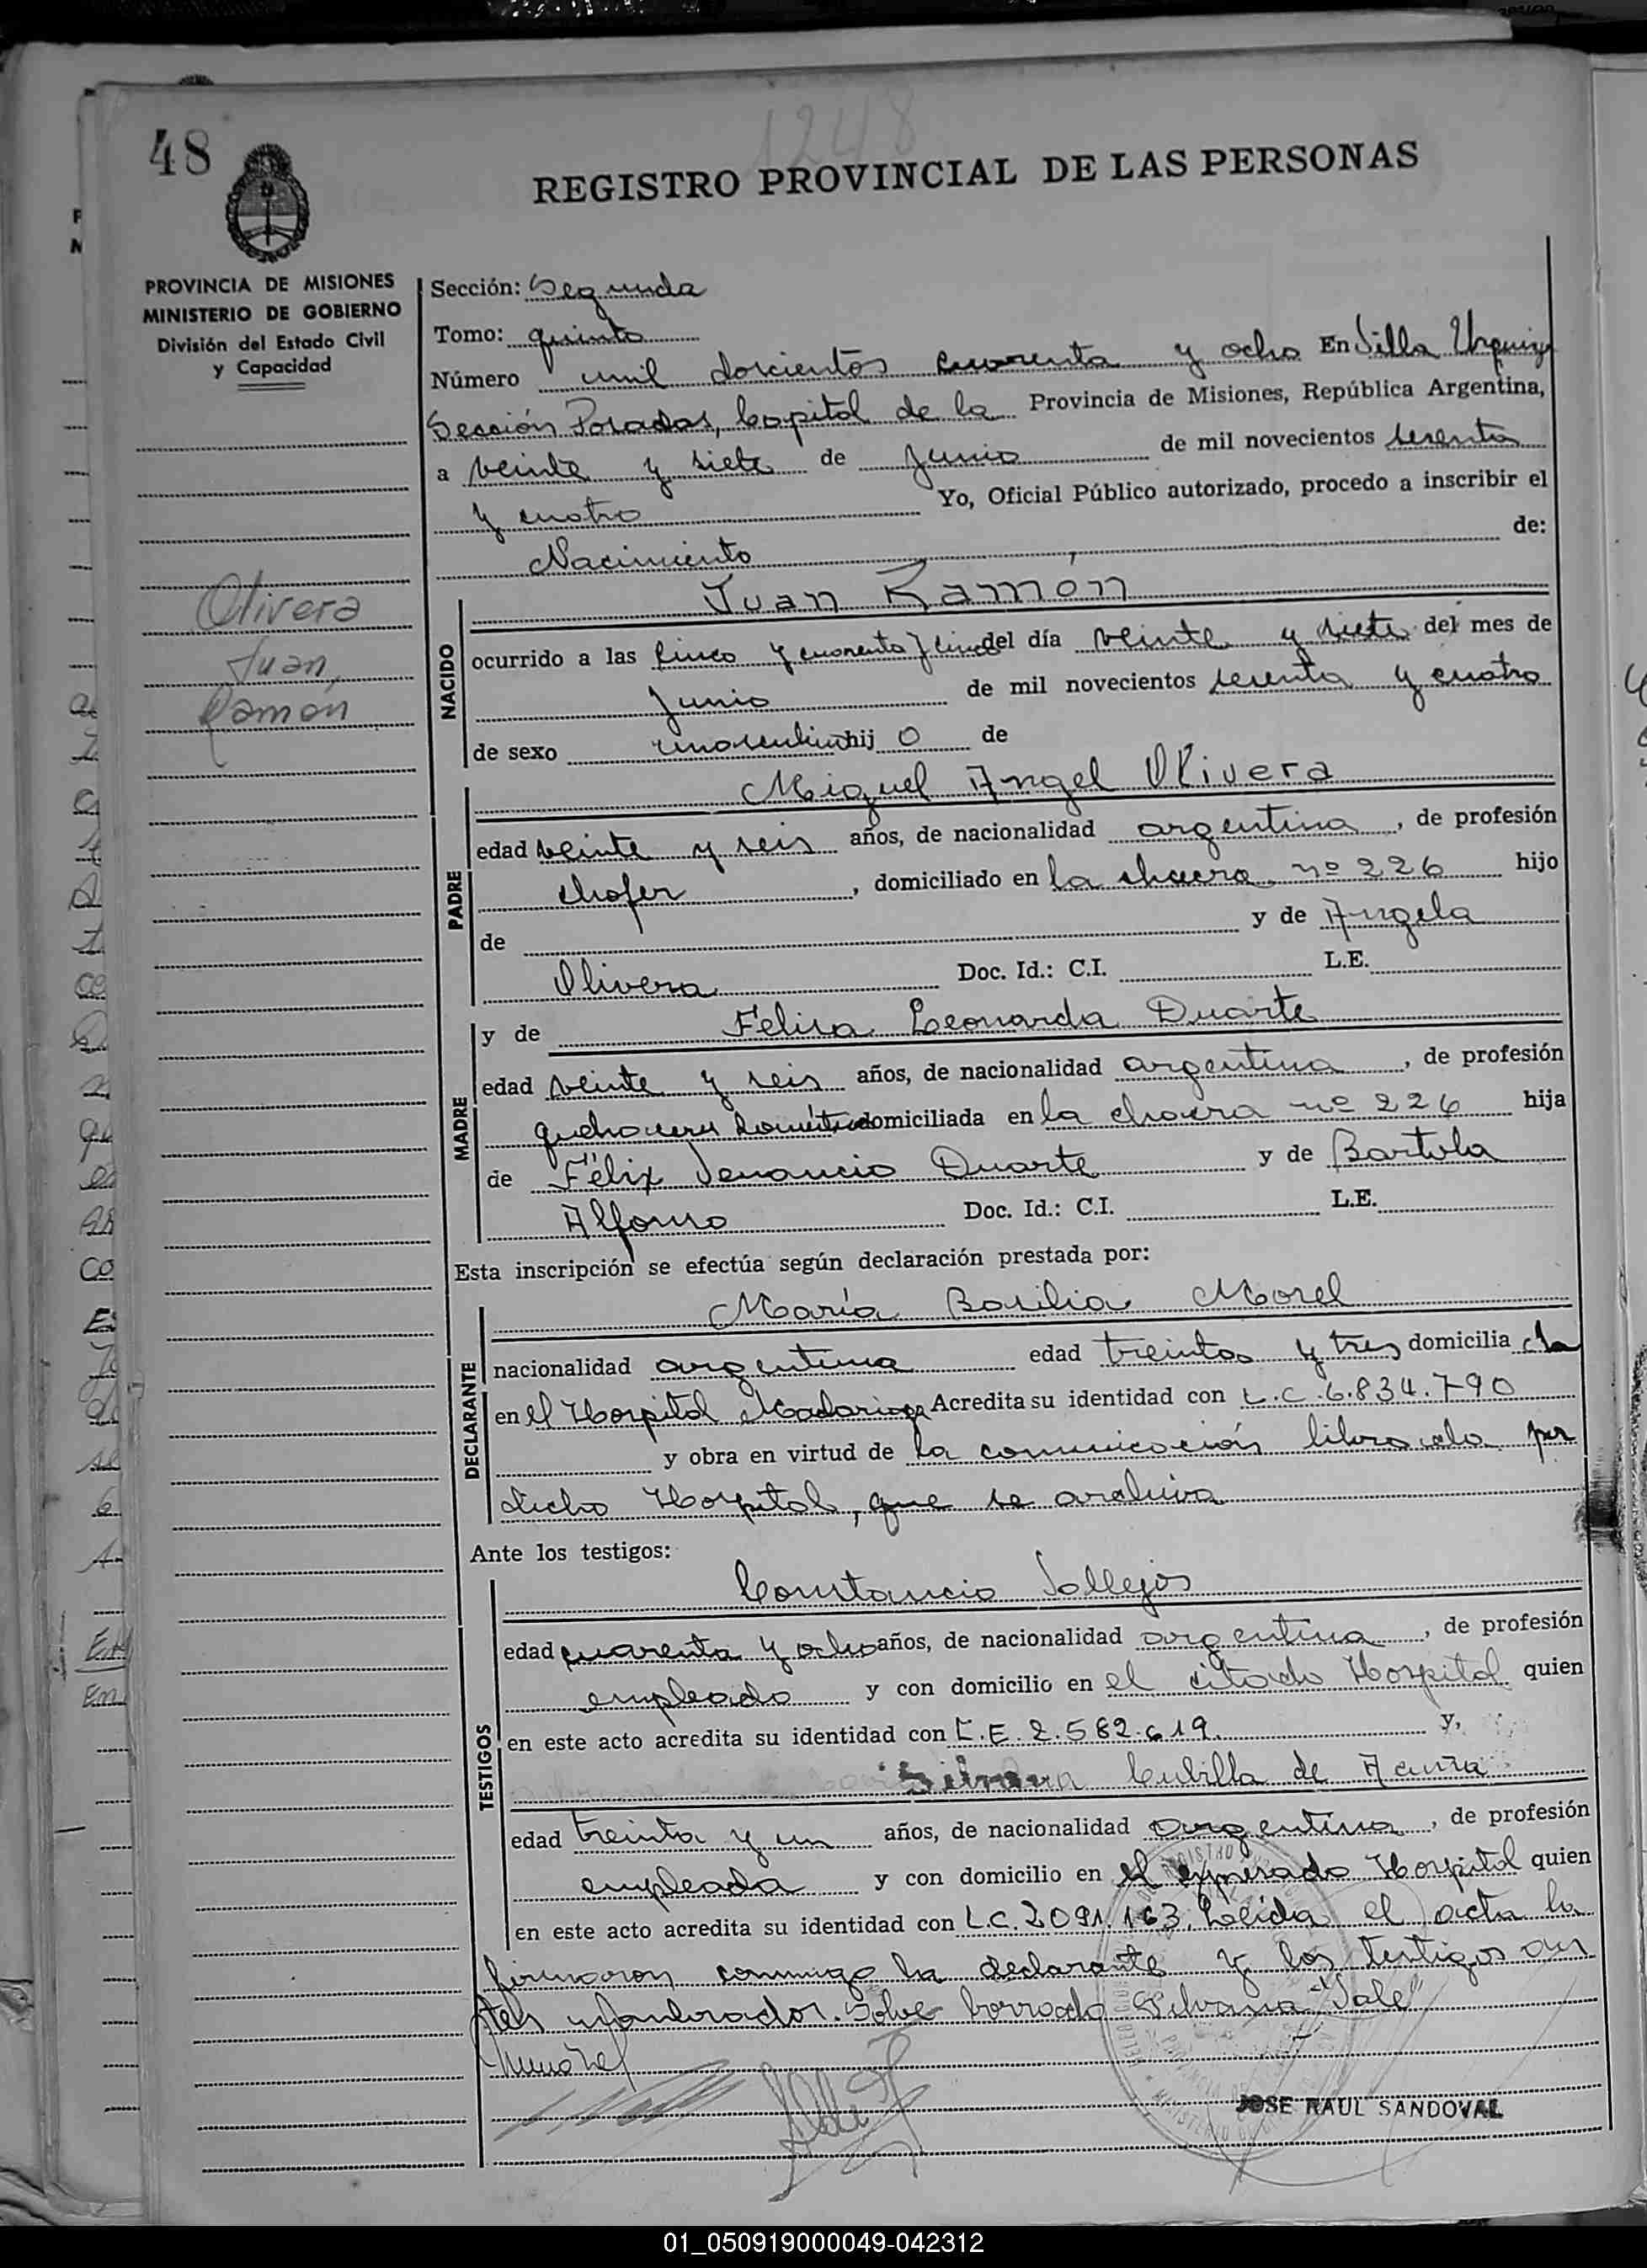 1248
48
REGISTRO PROVINCIAL DE LAS PERSONAS
PROVINCIA DE MISIONES
MINISTERIO DE GOBIERNO
División del Estado Civil
y Capacidad
Olivera
Juan
Ramón
Sección: Segunda
Tomo: quinto
Número mil doscientos cuarenta y ocho En Villa Urquiza
Sección Posadas, Capital de la Provincia de Misiones, República Argentina,
a veinte y siete de Junio de mil novecientos sesenta
y cuatro Yo, Oficial Público autorizado, procedo a inscribir el
Nacimiento de:
NACIDO
Juan Ramón
ocurrido a las cinco y cuarenta y cinco del día veinte y siete del mes de
Junio de mil novecientos sesenta y cuatro
de sexo masculino hij o de
PADRE
Miguel Angel Olivera
edad veinte y seis años, de nacionalidad argentina, de profesión
chofer, domiciliado en la chacra nº 226 hijo
de y de Angela
Olivera Doc. Id.: C.I. L.E.
MADRE
y de Felisa Leonarda Duarte
edad veinte y seis años, de nacionalidad argentina, de profesión
quehaceres domésticos domiciliada en la chacra nº 226 hija
de Félix Venancio Duarte y de Bartola
Alfonso Doc. Id.: C.I. L.E.
Esta inscripción se efectúa según declaración prestada por:
DECLARANTE
María Basilia Morel
nacionalidad argentina edad treinta y tres domicilia da
en el Hospital Madariaga Acredita su identidad con L.C. 6.834.790
y obra en virtud de la comunicación librada por
dicho Hospital, que se archiva
Ante los testigos:
TESTIGOS
Constancio Vallejos
edad cuarenta y ocho años, de nacionalidad argentina, de profesión
empleado y con domicilio en el citado Hospital quien
en este acto acredita su identidad con L.E. 2.582.619. y,
Silvana Cubilla de Acuña
edad treinta y un años, de nacionalidad argentina, de profesión
empleada y con domicilio en el expresado Hospital quien
en este acto acredita su identidad con L.C. 2091.163. Leída el acta la
firmaron conmigo la declarante y los testigos an
tes nombrados. Sobre borrado Silvana "Vale"
JOSE RAUL SANDOVAL
01_050919000049-042312